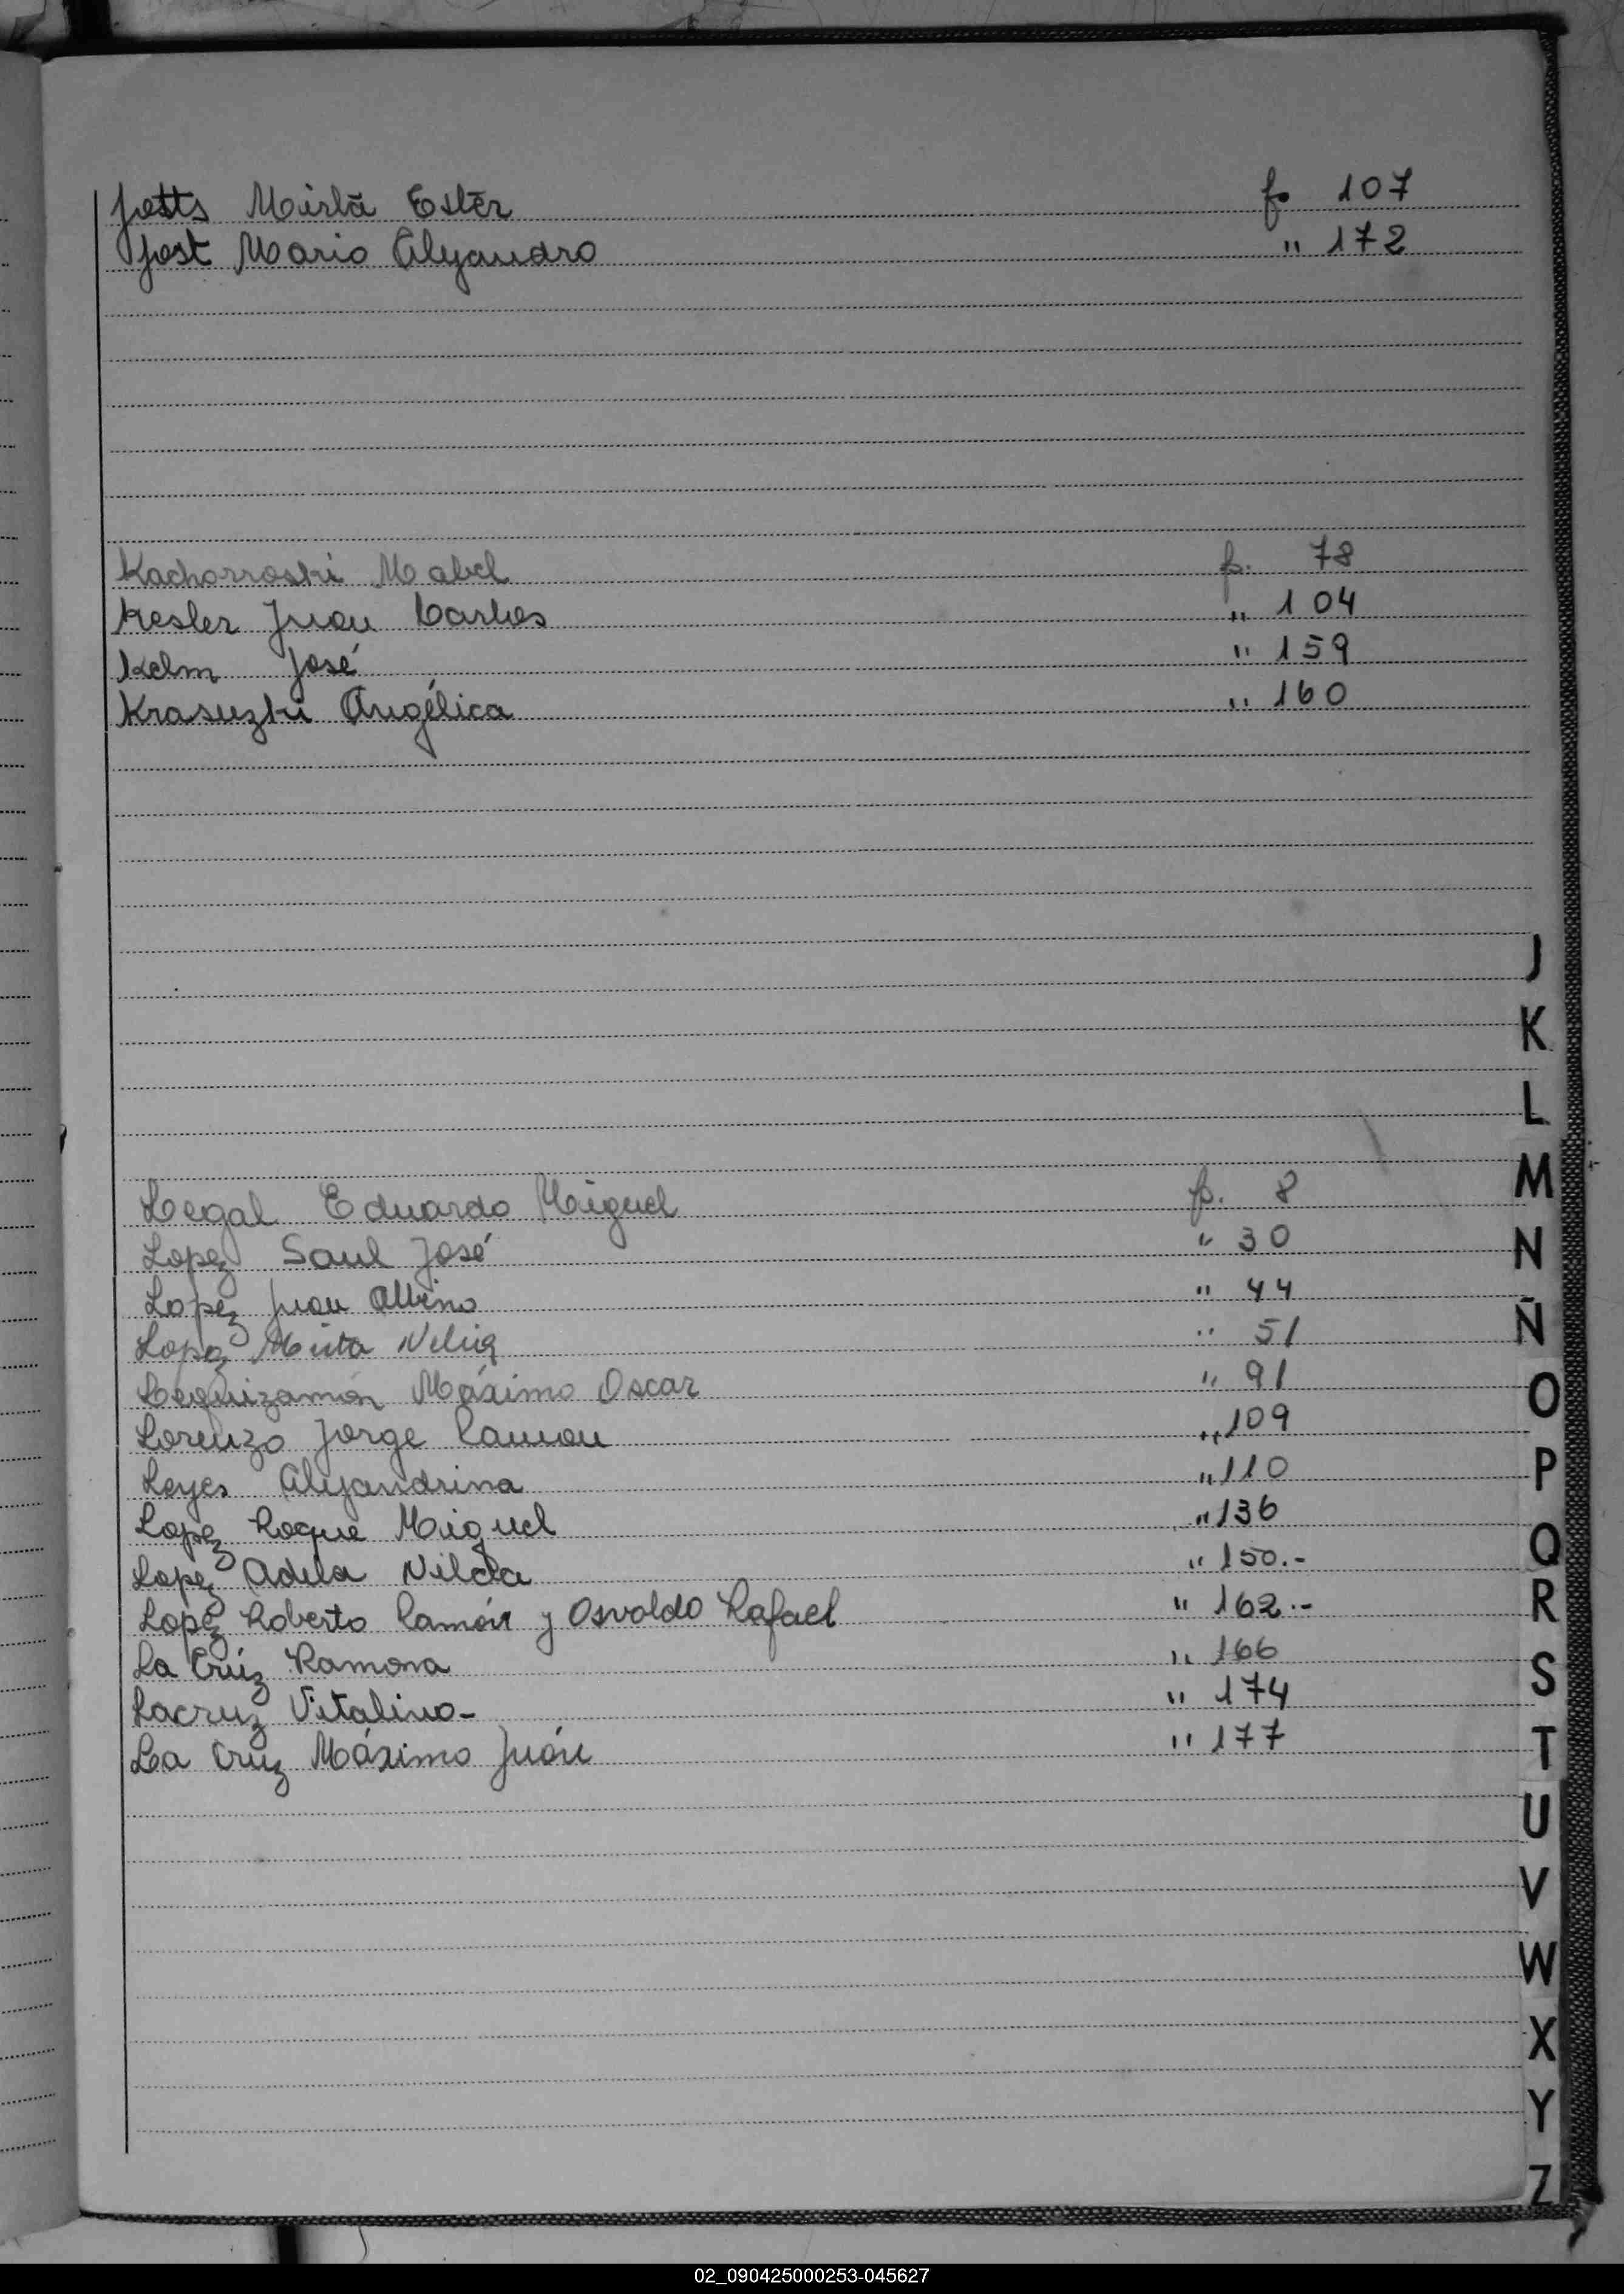 Jotts Mirta Ester f. 107
Jost Mario Alejandro " 172
Kachorroski Mabel f. 78
Kesler Juan Carlos " 104
Kelm José " 159
Krasuzki Angélica " 160
J
K
L
Legal Eduardo Miguel f. 8
M
Lopez Saul José " 30
N
Lopez Juan Albino " 44
Ñ
Lopez Mirta Nelia " 51
Leguizamón Máximo Oscar " 91
O
Lorenzo Jorge Ramon " 109
Leyes Alejandrina " 110
P
Lopez Roque Miguel " 136
Lopez Adela Nilda " 150.-
Q
Lopez Roberto Ramón y Osvaldo Rafael " 162.-
R
La Crúz Ramona " 166
S
Lacruz Vitalino- " 174
La Cruz Máximo Juán " 177
T
U
V
W
X
Y
Z
02_090425000253-045627